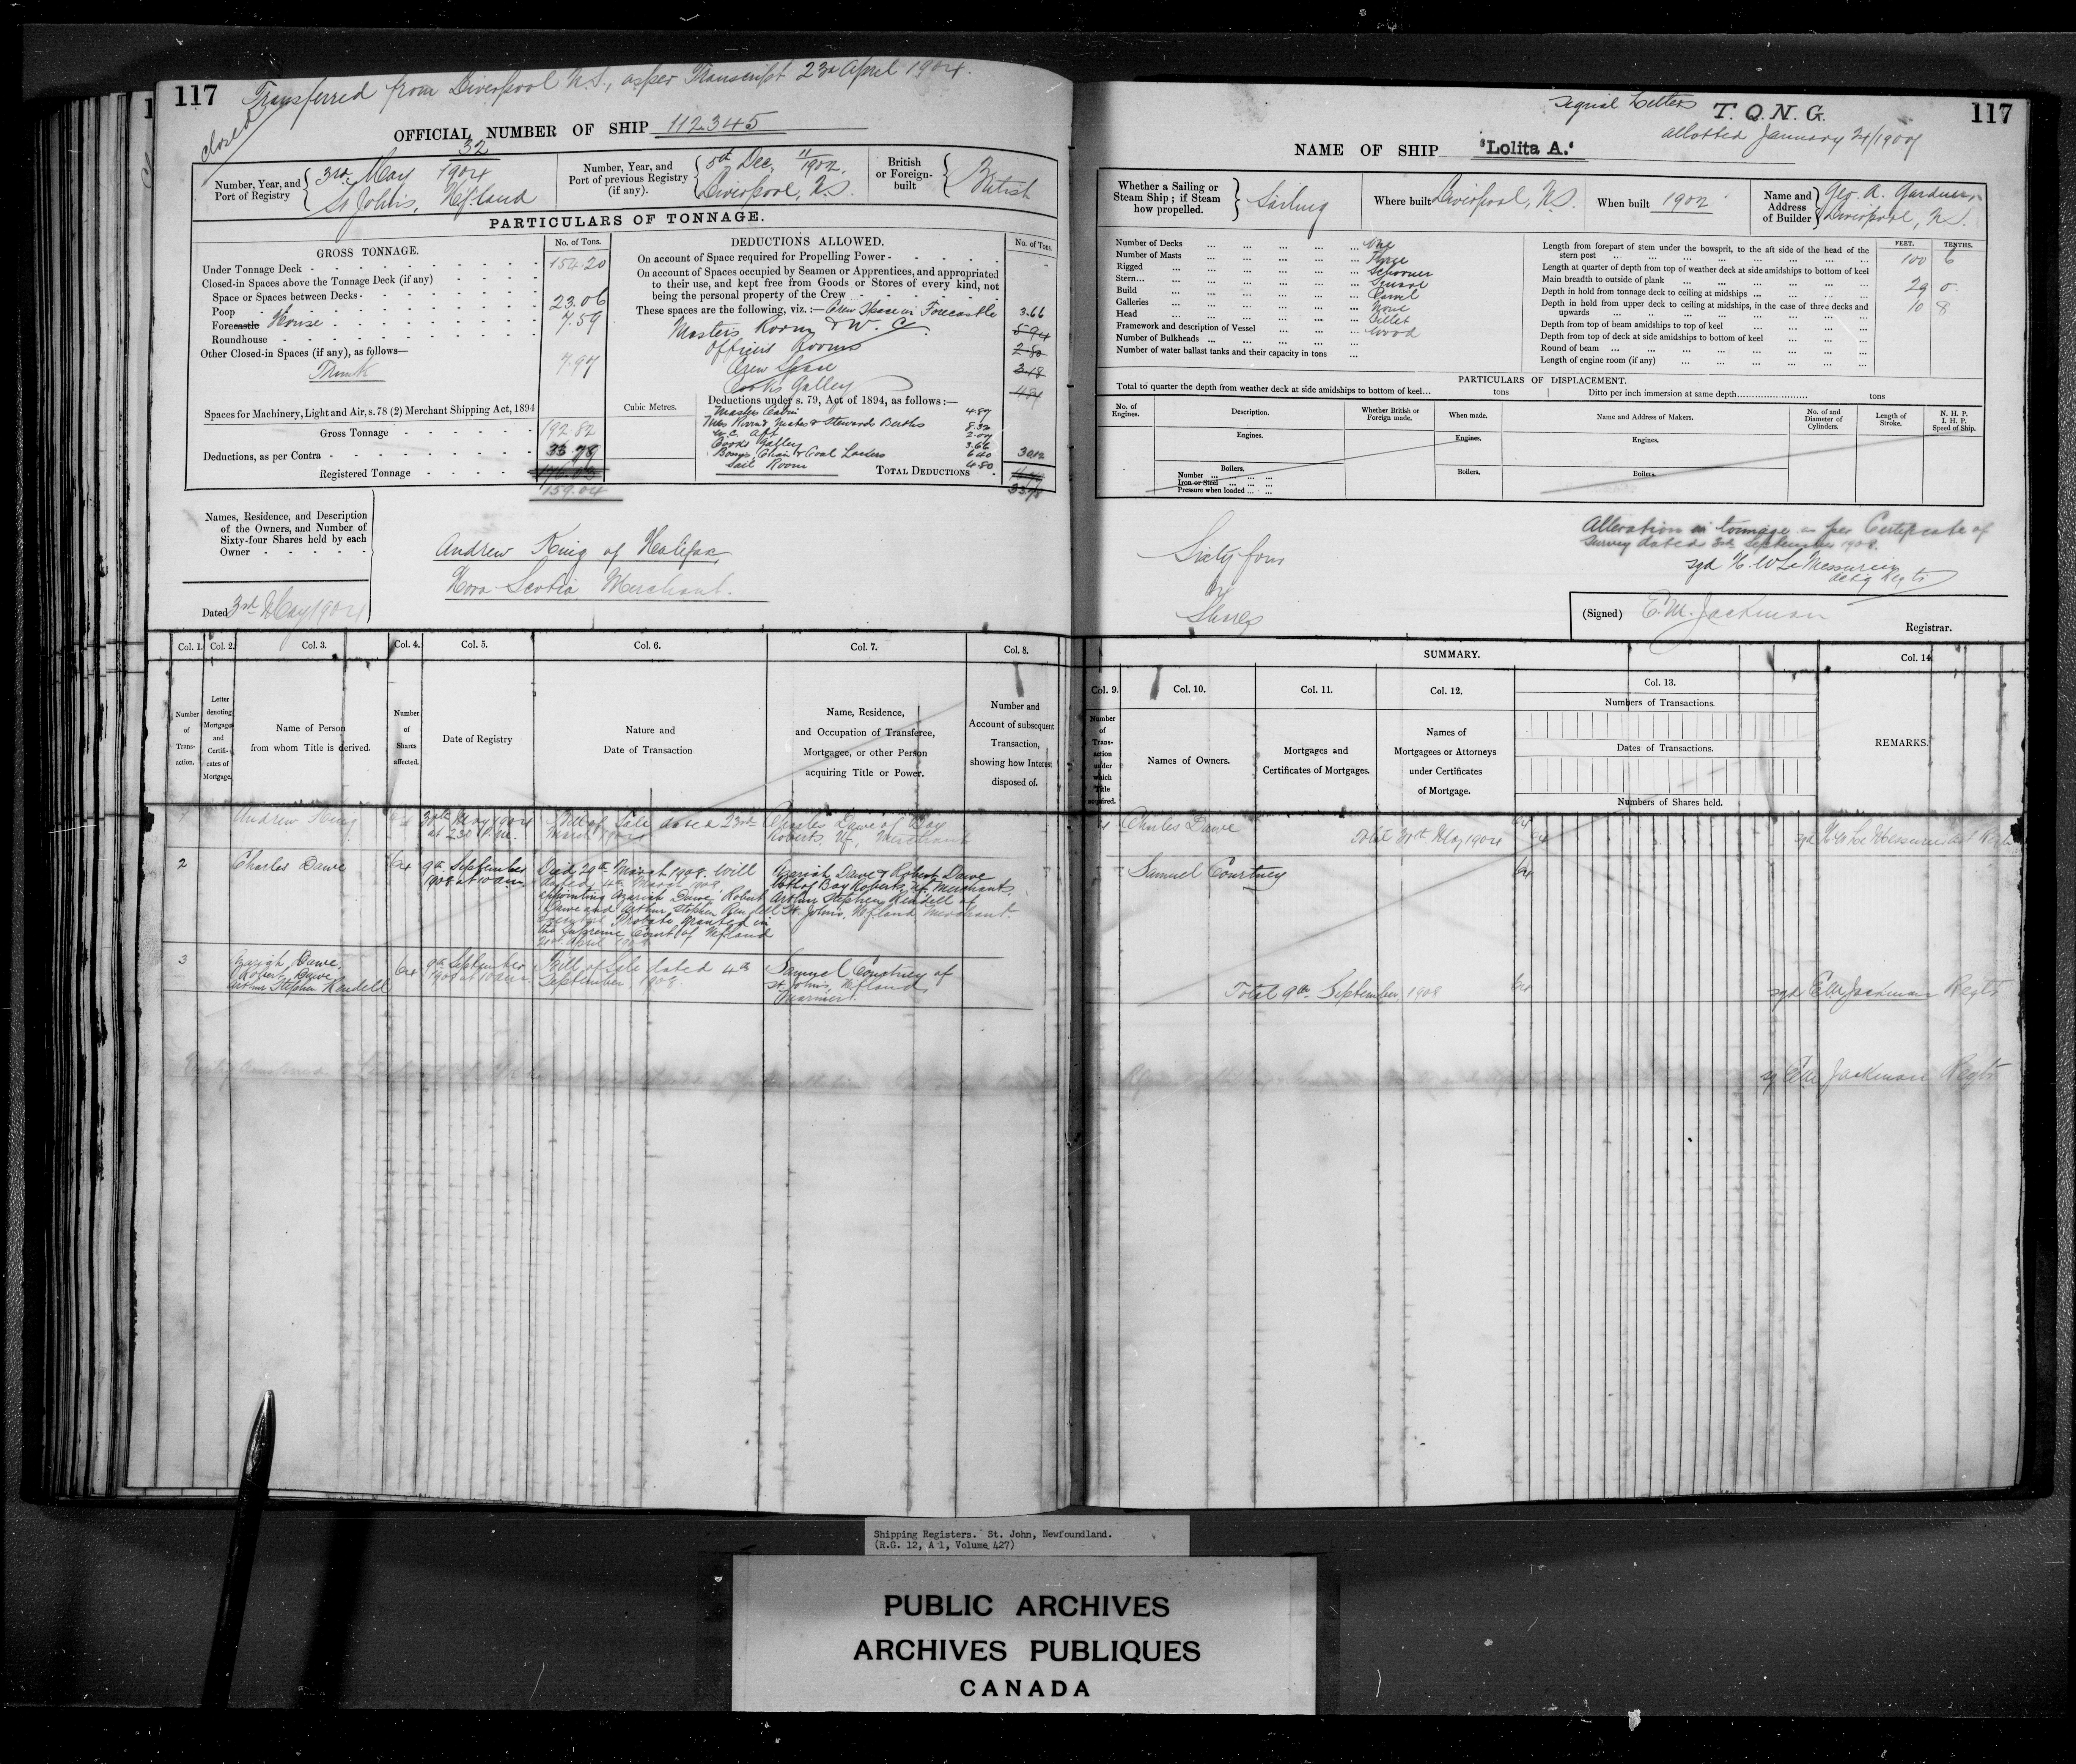 117
Transferred from Liverpool N.S., as per Transcript 23rd April 1904.
closed
OFFICIAL NUMBER OF SHIP 112345
Number, Year, and Port of Registry
32
3rd May 1904
St John's, Nfland
Number, Year, and Port of previous Registry (if any).
5th Dec. 11/1902,
Liverpool, N.S.
British or Foreign-built
British
PARTICULARS OF TONNAGE.
GROSS TONNAGE.
No. of Tons.
Under Tonnage Deck 154.20
Closed-in Spaces above the Tonnage Deck (if any)
Space or Spaces between Decks
Poop 23.06
Forecastle House 7.59
Roundhouse
Other Closed-in Spaces (if any), as follows—
Trunk 7.97
Spaces for Machinery, Light and Air, s. 78 (2) Merchant Shipping Act, 1894
Gross Tonnage 192.82
Deductions, as per Contra 33.78
Registered Tonnage
159.04
DEDUCTIONS ALLOWED.
No. of Tons.
On account of Space required for Propelling Power
On account of Spaces occupied by Seamen or Apprentices, and appropriated
to their use, and kept free from Goods or Stores of every kind, not
being the personal property of the Crew
These spaces are the following, viz.:— Crew Space in Forecastle 3.66
Masters Room & W.C. 5.94
Officers Rooms 2.80
Crew Space 3.18
Cooks Galley
Cubic Metres.
Deductions under s. 79, Act of 1894, as follows:—
Masters Cabin 4.87
Mates & Stewards Berths 8.32
W.C. Aft 2.07
Cooks Galley 3.66
Bosns, Chain & Coal Lockers 6.40
Sail Room 4.80
30.12
TOTAL DEDUCTIONS
33.78
Names, Residence, and Description
of the Owners, and Number of
Sixty-four Shares held by each
Owner
Andrew King of Halifax
Nova Scotia Merchant.
Dated 3rd May 1904
Col. 1. Col. 2. Col. 3. Col. 4. Col. 5. Col. 6. Col. 7. Col. 8.
Number of Transaction.
Letter denoting Mortgages and Certificates of Mortgage.
Name of Person from whom Title is derived.
Number of Shares affected.
Date of Registry
Nature and Date of Transaction
Name, Residence, and Occupation of Transferee, Mortgagee, or other Person acquiring Title or Power.
Number and Account of subsequent Transaction, showing how Interest disposed of.
1
Andrew King
64
30th May 1904
at 2.30 P.m.
Bill of Sale dated 23rd
March 1904
Charles Dawe of Bay
Roberts. Nf, Merchant
2
Charles Dawe
64
9th September
1908 at 10 am
Died 29th March 1908. Will
dated 4th March 1908
appointing Azariah Dawe, Robert
Dawe and Arthur Stephen Rendell
Executors Probate granted in
the Supreme Court of Nfland
April 1908
Azariah Dawe & Robert Dawe
both of Bay Roberts, Nf. Merchants
Arthur Stephen Rendell of
St. John's, Nfland Merchant.
3
Azariah Dawe,
Robert Dawe
Arthur Stephen Rendell
64
9th September
1908 at 10 am
Bill of Sale dated 4th
September 1908
Samuel Courtney of
St John's, Nfland,
Mariner.
Signal Letters T.Q.N.G.
allotted January 21/1909
117
NAME OF SHIP "Lolita A."
Whether a Sailing or Steam Ship; if Steam how propelled.
Sailing
Where built Liverpool, N.S.
When built 1902
Name and Address of Builder
Geo. A. Gardner,
Liverpool, N.S.
Number of Decks One
Number of Masts Three
Rigged Schooner
Stern Square
Build Carvel
Galleries None
Head Billet
Framework and description of Vessel Wood
Number of Bulkheads
Number of water ballast tanks and their capacity in tons
FEET. TENTHS.
Length from forepart of stem under the bowsprit, to the aft side of the head of the
stern post 100 6
Length at quarter of depth from top of weather deck at side amidships to bottom of keel
Main breadth to outside of plank 29 0
Depth in hold from tonnage deck to ceiling at midships 10 8
Depth in hold from upper deck to ceiling at midships, in the case of three decks and
upwards
Depth from top of beam amidships to top of keel
Depth from top of deck at side amidships to bottom of keel
Round of beam
Length of engine room (if any)
PARTICULARS OF DISPLACEMENT.
Total to quarter the depth from weather deck at side amidships to bottom of keel... tons
Ditto per inch immersion at same depth tons
No. of Engines.
Description.
Whether British or Foreign made.
When made.
Name and Address of Makers.
No. of and Diameter of Cylinders.
Length of Stroke.
N. H. P.
I. H. P.
Speed of Ship.
Engines. Engines. Engines.
Boilers. Boilers. Boilers.
Number
Iron or Steel
Pressure when loaded
Sixty four
64
Shares
Alteration in tonnage as per Certificate of
Survey dated 3rd September 1908.
sgd H. W. LeMessurier
actig Regtr
(Signed) E.M. Jackman
Registrar.
SUMMARY.
Col. 9. Col. 10. Col. 11. Col. 12. Col. 13. Col. 14.
Number of Transaction under which Title acquired.
Names of Owners.
Mortgages and Certificates of Mortgages.
Names of Mortgagees or Attorneys under Certificates of Mortgage.
Numbers of Transactions.
Dates of Transactions.
Numbers of Shares held.
REMARKS.
Charles Dawe
64
Total 30th May 1904
64
sgd H. W. Le Messurier act Regtr
Samuel Courtney
64
Total 9th September 1908
64
sgd E M Jackman Regtr
sg E M Jackman Regtr
Shipping Registers. St. John, Newfoundland.
(R.G. 12, A 1, Volume 427)
PUBLIC ARCHIVES
ARCHIVES PUBLIQUES
CANADA